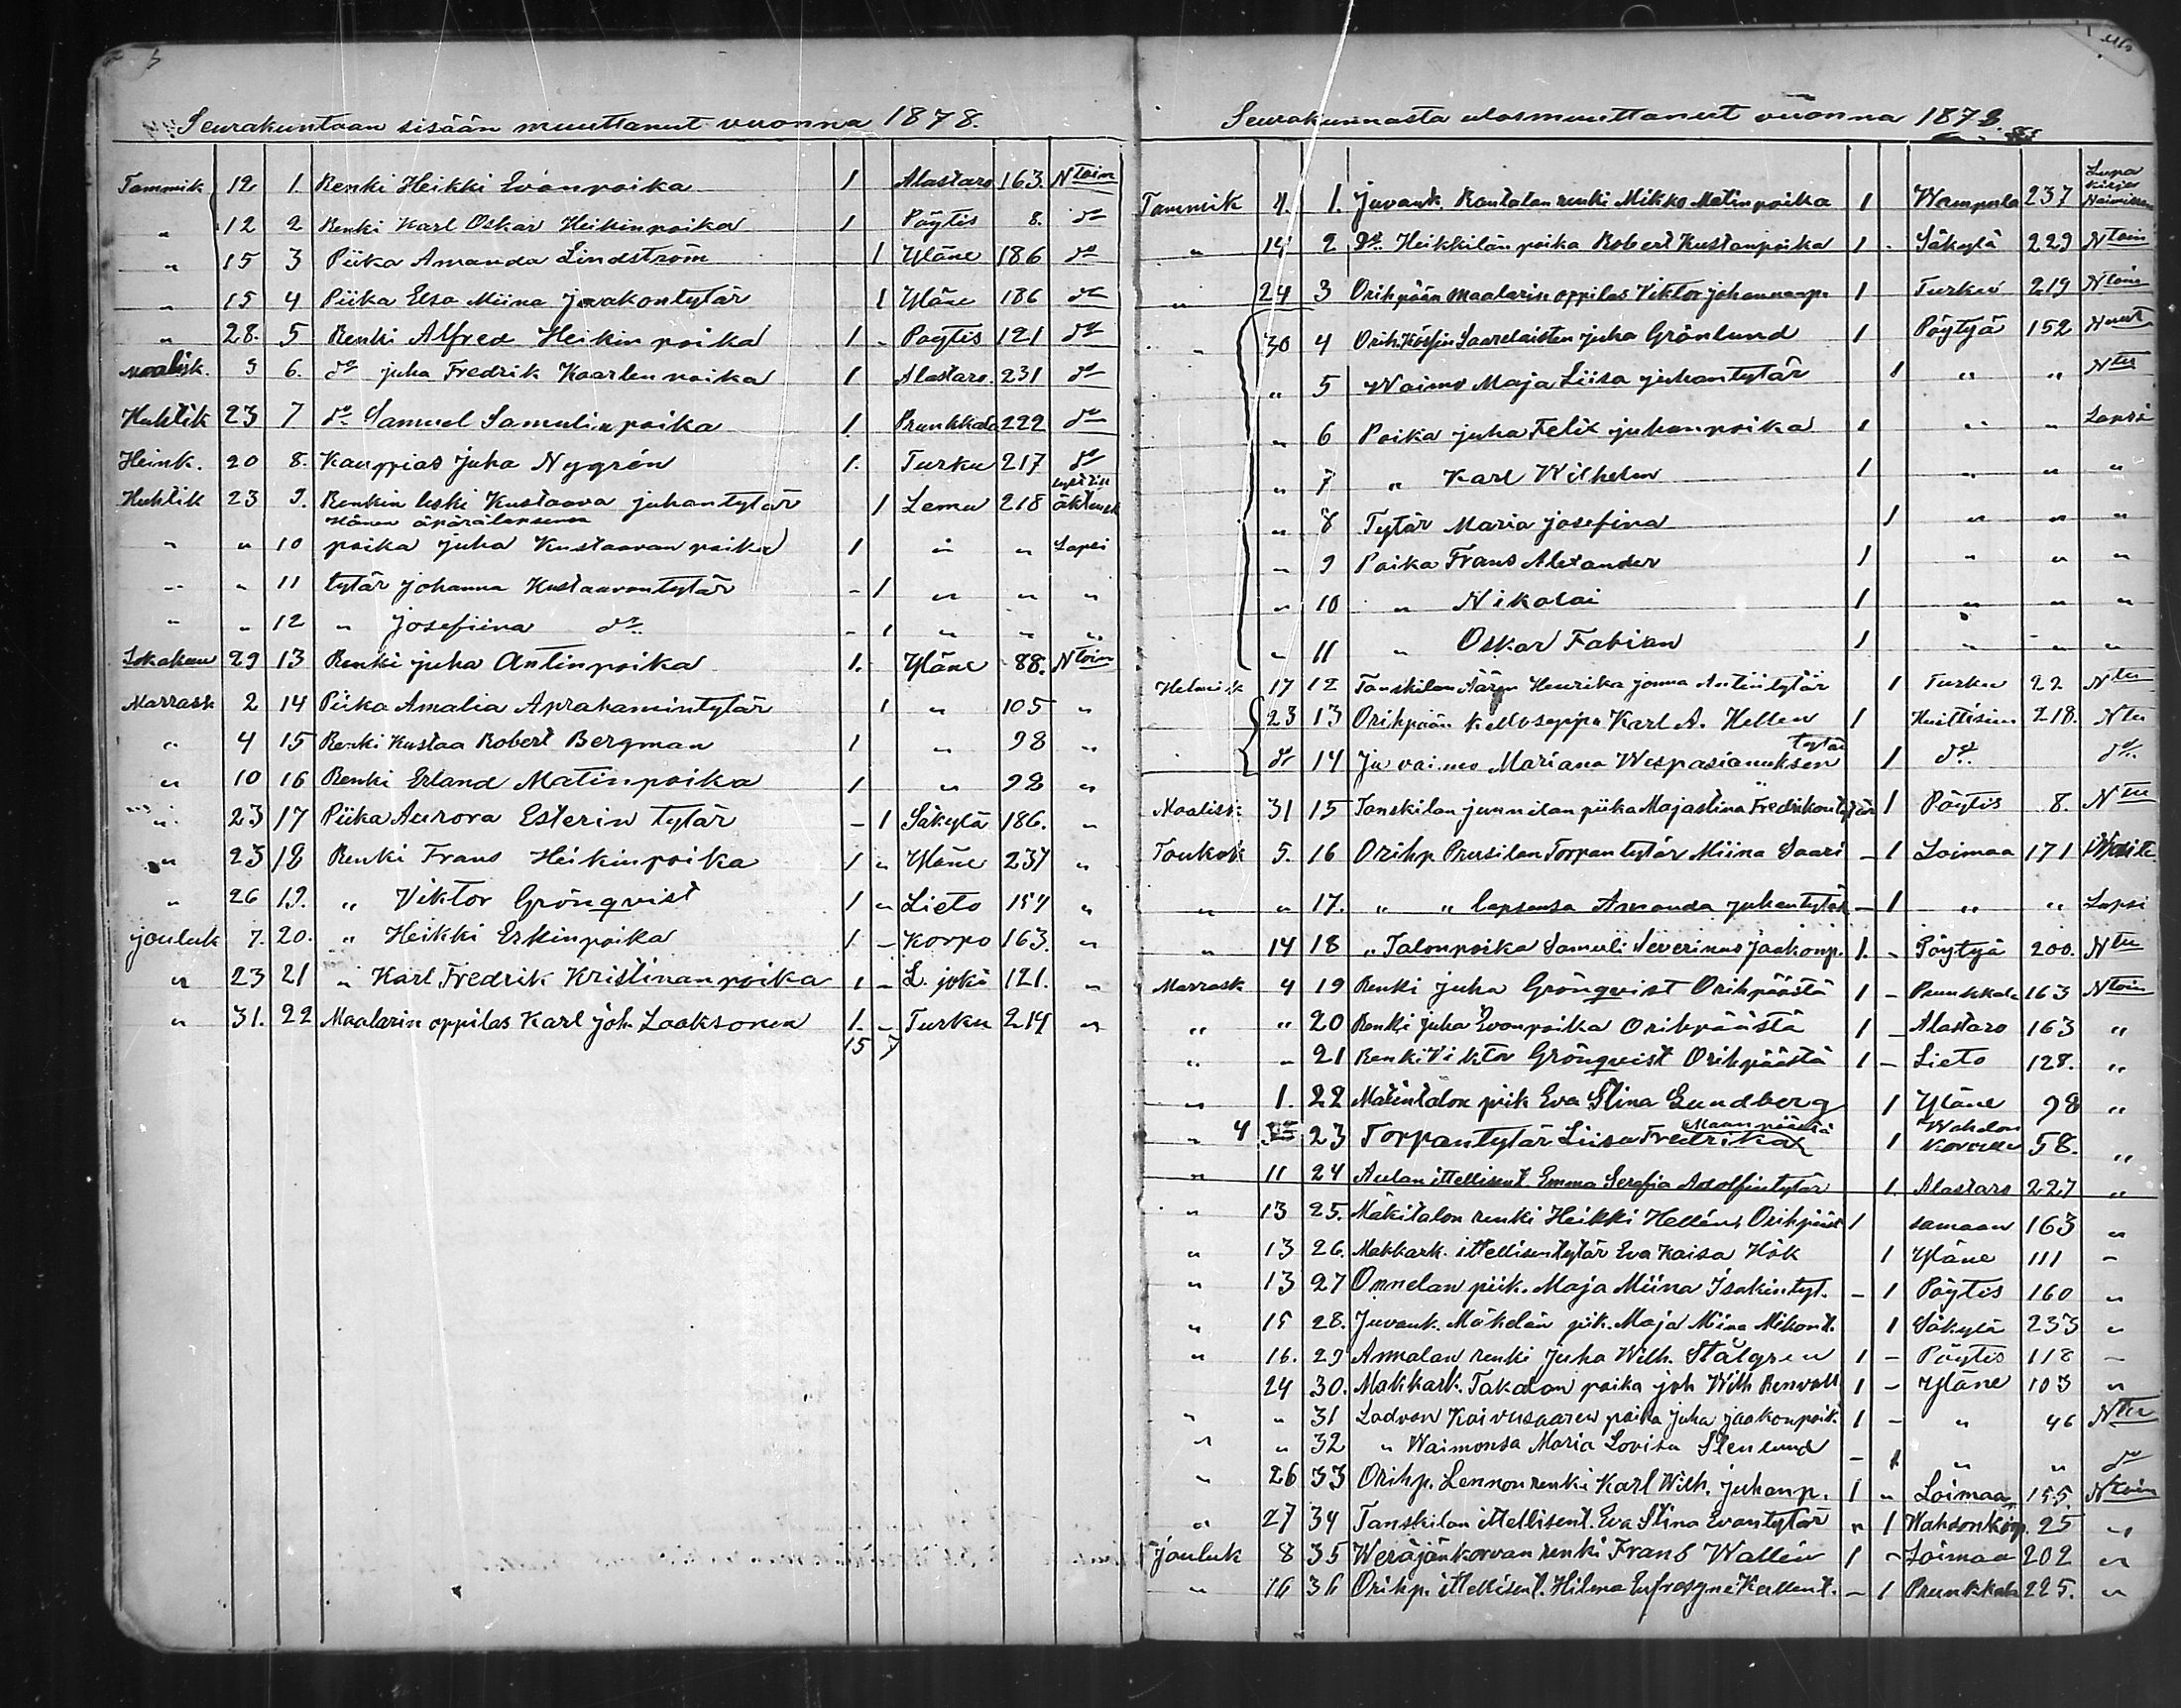 Seurakuntaan sisään muuttanut vuonna 1878.
Tammik 12 1. Renki Heikki Evanpoika 1 Alastaro 163. Ntoin
" 12 2 Renki Karl Oskar Heikinpoika 1 Pöytis 8. do
" 15 3 Piika Amanda Lindström 1 Yläne 186 do
" 15 4 Piika Elsa Miina Jaakontytär 1 Yläne 186 do
" 28. 5 Renki Alfred Heikin poika 1 - Pöytis 121 do
Maalisk. 9 6. do Juha Fredrik Kaarlen poika 1 Alastaro. 231 do
Huhtik 23 7 do Samuel Samulin poika 1. Prunkkala 222 do
Heink. 20 8. Kauppias Juha Nygrén 1. Turku 217 do
Huhtik 23 9. Renkin leski Kustaava Juhantytär 1 Lemu 218
Hänen äpärälapsensa
" " 10 poika Juha Kustaavan poika 1 " " Lapsi
" " 11 tytär Johanna Kustaavantytär - 1 " " "
" " 12 " Josefiina do - 1 " " "
Lokakuu 29 13 Renki Juha Antinpoika 1. Yläne 88. Ntoin
Marrask 2 14 Piika Amalia Aprahamintytär 1 " 105 "
" 4 15 Renki Kustaa Robert Bergman 1 " 98 "
" 10 16 Renki Erland Matinpoika 1 " 92 "
" 23 17 Piika Aurora Esterin tytär - 1 Säkylä 186. "
" 23 18 Renki Frans Heikinpoika 1 " Yläne 237 "
" 26 19. " Viktor Grönqvist 1 " Lieto 157 "
Jouluk 7. 20. " Heikki Erkinpoika 1 - Korpo 163. "
" 23 21 " Karl Fredrik Kristinanpoika 1 - L. joki 121. "
" 31. 22 Maalarin oppilas Karl Joh. Laaksonen 1. - Turku 214 "
15 7
Seurakunnasta ulosmuuttanut vuonna 1878
Tammik 4. 1. Juvank. Rantalan renki Mikko Matinpoika 1 Wampula 237 Lupa kirja
" 14 2 do. Heikkilän poika Robert Kustanpoika 1 - Säkylä 229 Ntoin
" 24 3 Orihpään maalarin oppilas Viktor Johannanp. 1 Turku 219 Ntoin
" 30 4 Saarelaisten Juha Grönlund 1 Pöytyä 152
" 5 Waimo Maja Liisa Juhantytär 1 " " Ntu
" 6 Poika Juha Felix Juhanpoika 1 " " Lapsi
" 7 " Karl Wilhelm 1 " " "
" 8 Tytär Maria Josefina 1 " " "
" 9 Poika Frans Alexander 1 " " "
" 10 " Nikolai 1 " " "
" 11 " Oskar Fabian 1 " " "
Helmik 17 12 Tanskilan Henrika Antintytär 1 Turku 22 Ntu
23 13 Orihpään Kelloseppä Karl A. Hellen 1 Huittisiin 218. Ntu
do 14 Ja vaimo Mariana Wespasianuksen tytär 1 do. do.
Maalisk 31 15 Tanskilan Junnilan piika Majastina Fredrikantytär 1 Pöytis 8. Ntu
Toukok 5. 16 Orihp. Prusilan Torpantytär Miina Saari - 1 Loimaa 171
" " 17. " " lapsensa Amanda Juhantytär - 1 " " Lapsi
" 14 18 " Talonpoika Samuli Severinus Jaakonp. 1. - Pöytyä 200. Ntu
Marrask 4 19 Renki Juha Grönqvist Orihpäästä 1 - Prunkkala 163 Ntoin
" " 20 Renki Juha Evanpoika Orihpäästä 1 - Alastaro 163 "
" " 21 Renki Viktor Grönqvist Orihpäästä 1 - Lieto 128. "
" 1. 22 Mälintalon piik Eva Stina Lundberg 1 Yläne 98 "
" 4 23 Torpantytär Liisa Fredrika 1 Wahdon 58. "
" 11 24 Aulan ittellisent. Emma Serafia Adolfintytär 1. Alastaro 227 "
" 13 25. Mäkitalon renki Heikki Hellen, Orihpäästä 1 samaan 163 "
" 13 26. Makkark. ittellisentytär Eva Kaisa Hök 1 Yläne 111 -
" 13 27 Onnelan piik. Maja Miina Isakintyt. - 1 Pöytis 160 "
" 15 28. Juvank. Mäkelän piik. Maja Miina Mikont. 1 Säkylä 233 "
" 16. 29 Annalan renki Juha Wilh. Stålgren 1 - Pöytis 118 -
24 30. Makkark. Takalon poika Joh Wilh Renvall 1 - Yläne 103 "
" " 31 Ladvon Koivusaaren poika Juha Jaakonpoik. 1 - " 46 Ntu
" " 32 " Waimonsa Maria Lovisa Stenlund - 1 " " do
" 26 33 Orihp. Lennon renki Karl Wilh. Juhanp. 1 " Loimaa 155 Ntoin
" 27 34 Tanskilan ittellisent. Eva Stina Evantytär " 1 25 "
Jouluk 8 35 Weräjänkorvan renki Frans Wallén 1 - Loimaa 202 "
" 16 36 Orihp. ittellisent. Hilma Eufrosyne Kallent. - 1 Prunkkala 225. "